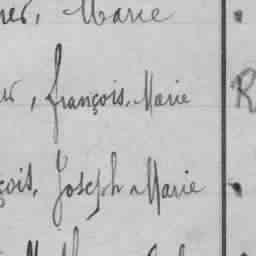 Marie
François, Marie R
çois, Joseph Marie